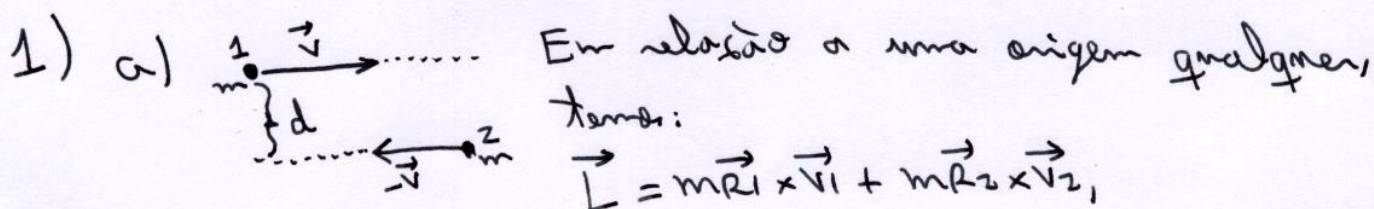 1) a) 1 m $\vec{v}$ Em relação a uma origem qualquer,
d temos:
$-\vec{v}$ 2 m $\vec{L} = m\vec{R1} \times \vec{V1} + m\vec{R2} \times \vec{V2},$